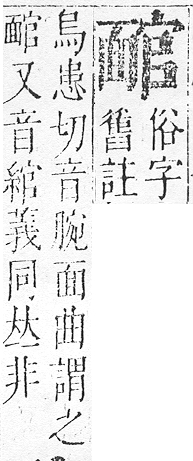 俗字
舊註
烏患切音腕面曲謂之
又音綰義同𠀤非